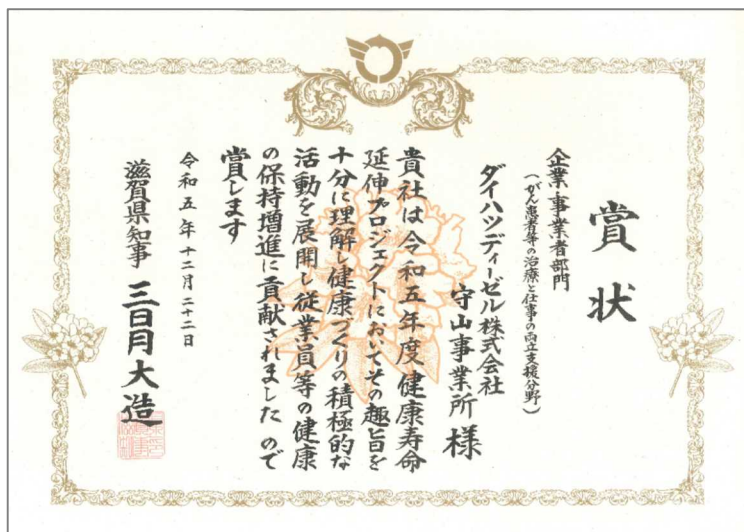 賞状
企業・事業者部門
（がん患者等の治療と仕事の両立支援分野）
ダイハツディーゼル株式会社
守山事業所 様
貴社は令和五年度健康寿命
延伸プロジェクトにおいてその趣旨を
十分に理解し健康づくりの積極的な
活動を展開し従業員等の健康
の保持増進に貢献されましたので
賞します
令和五年十二月二十二日
滋賀県知事 三日月大造